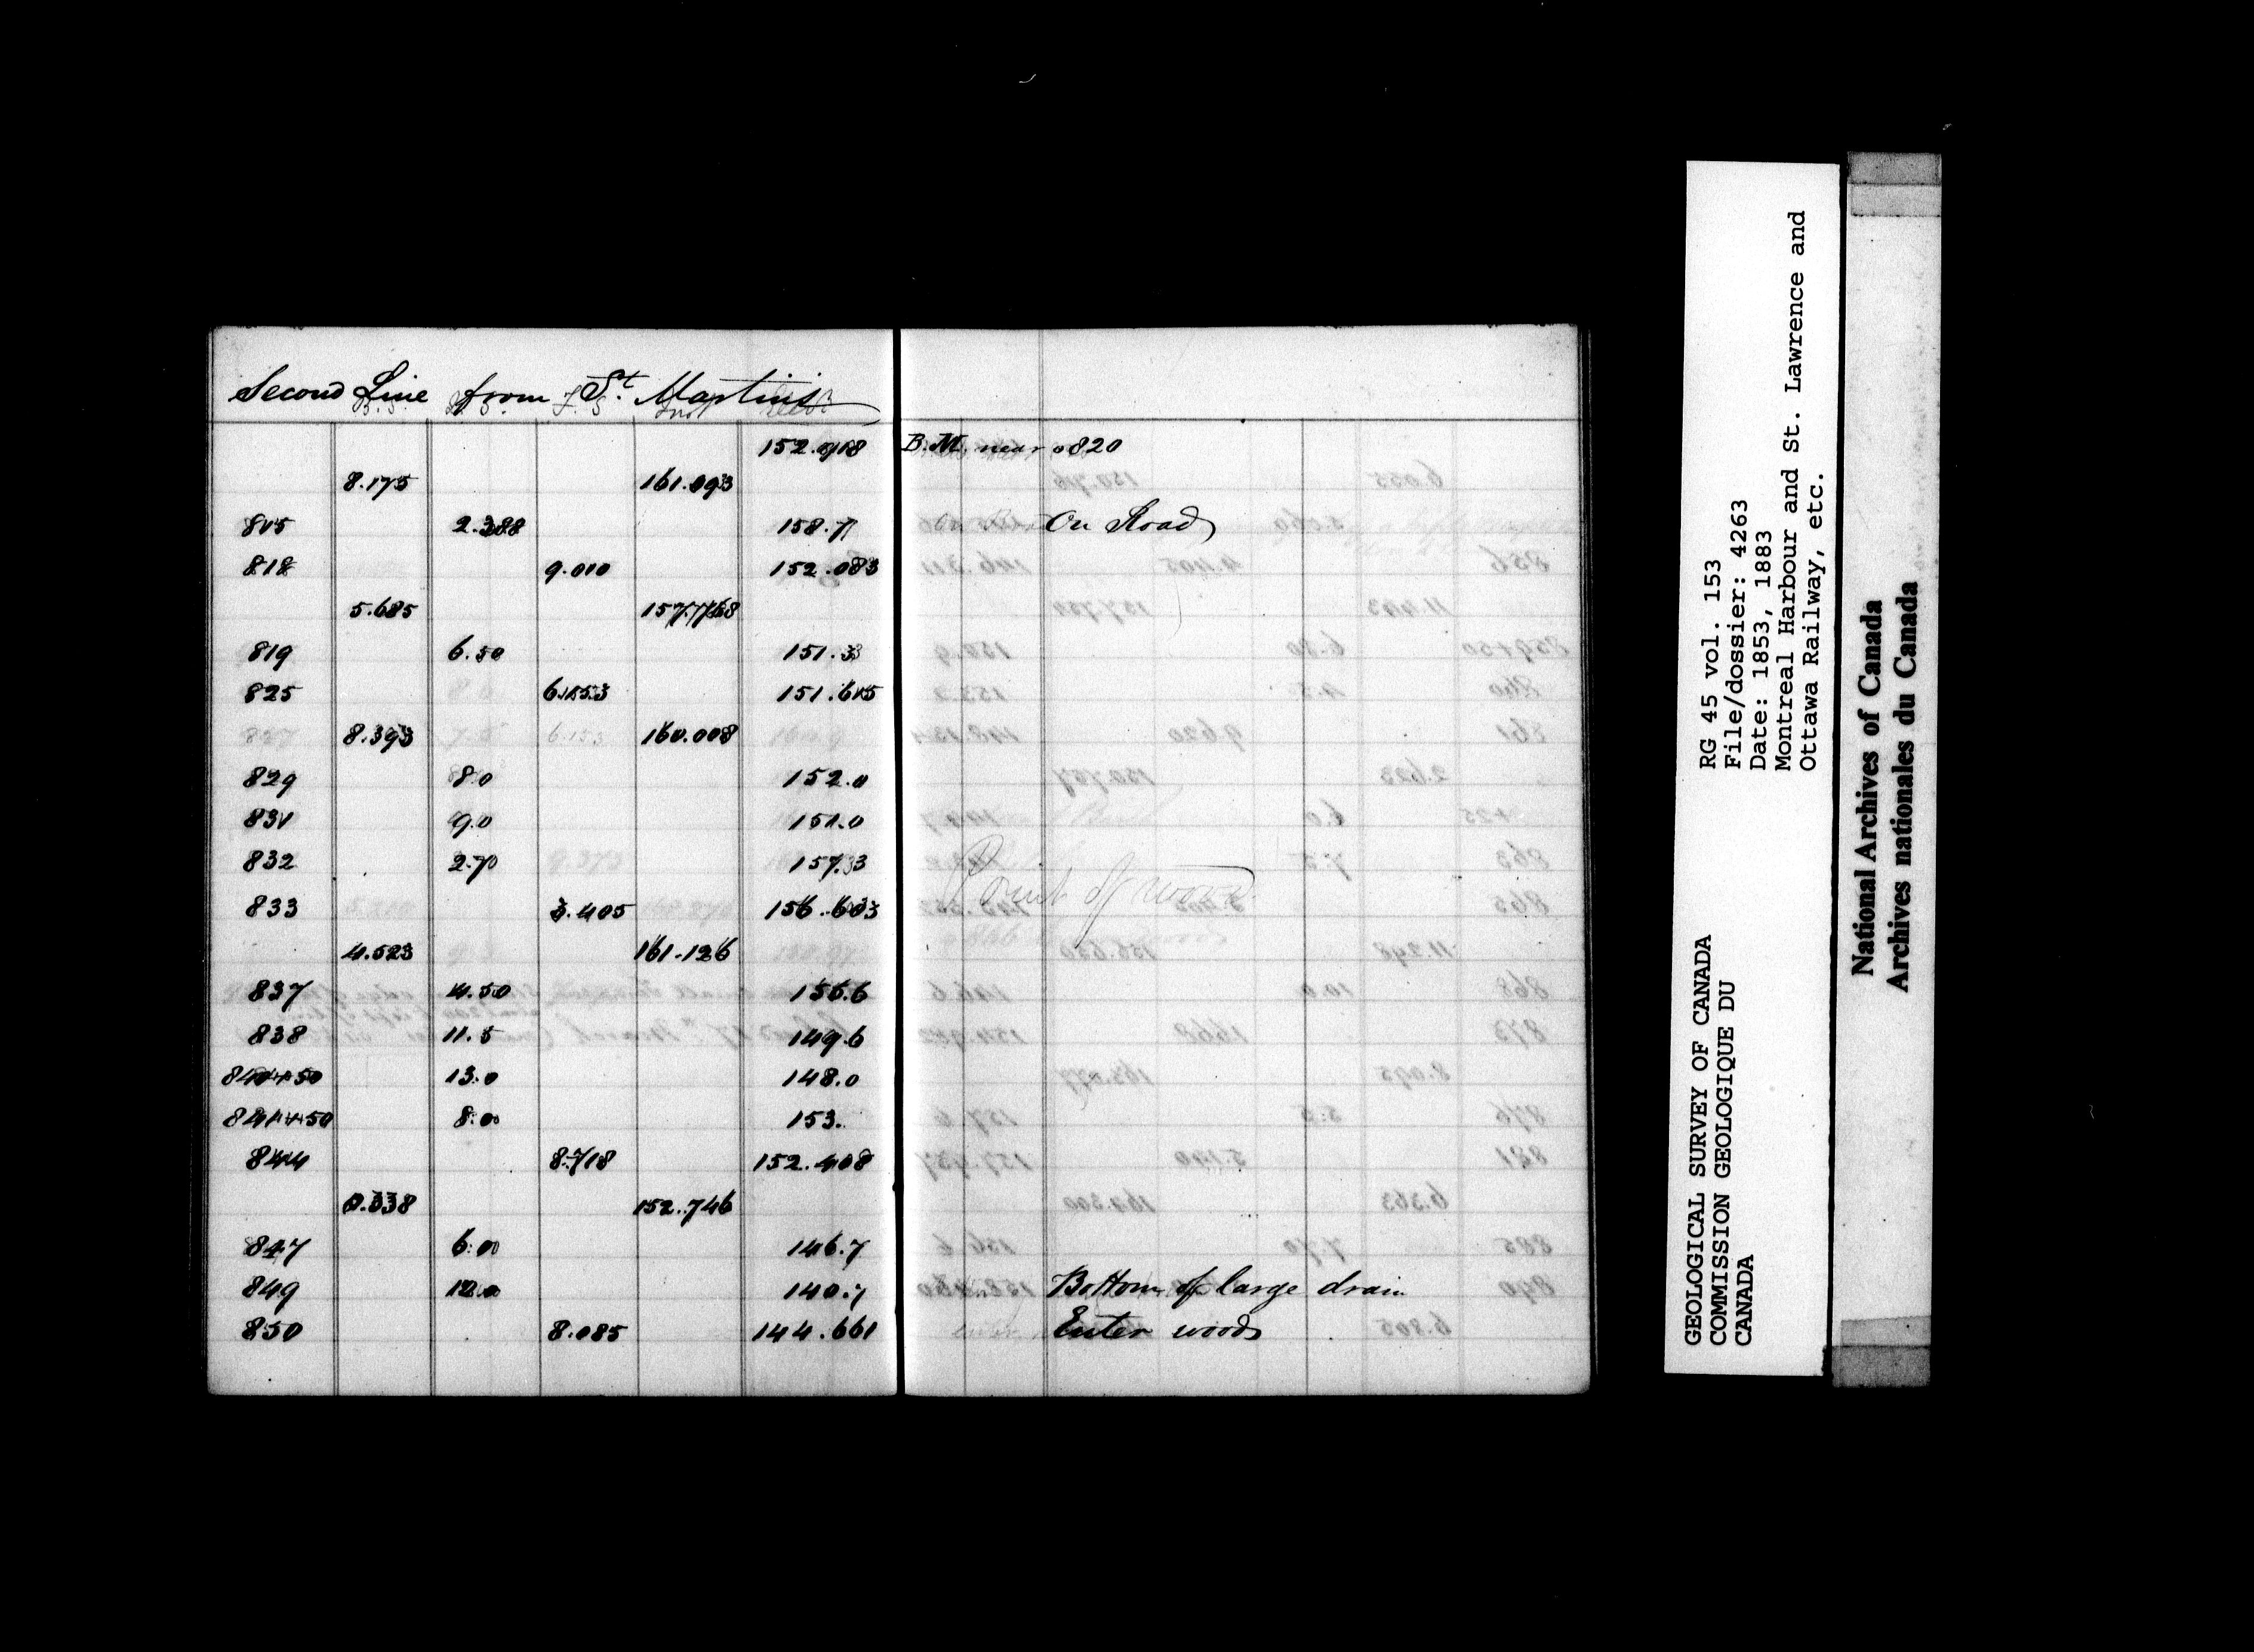 Second Line from St. Martins
B.S. I.S. F.S. Inst
152.918 B.M. near 820
8.175 161.093
815 2.388 158.7 On Road
818 9.010 152.083
5.685 157.768
819 6.50 151.3
825 6.153 151.615
8.393 160.008
829 8.0 152.0
831 9.0 151.0
832 2.70 157.3
Point of
833 3.405 156.603
4.523 161.126
837 4.50 156.6
838 11.5 149.6
840+50 13.0 148.0
841+50 8.00 153.
844 8.718 152.408
0.338 152.746
847 6.00 146.7
849 12.0 140.7 Bottom of large drain
850 8.085 144.661 Enter woods
GEOLOGICAL SURVEY OF CANADA
COMMISSION GEOLOGIQUE DU
CANADA
RG 45 vol. 153
File/dossier: 4263
Date: 1853, 1883
Montreal Harbour and St. Lawrence and
Ottawa Railway, etc.
National Archives of Canada
Archives nationales du Canada